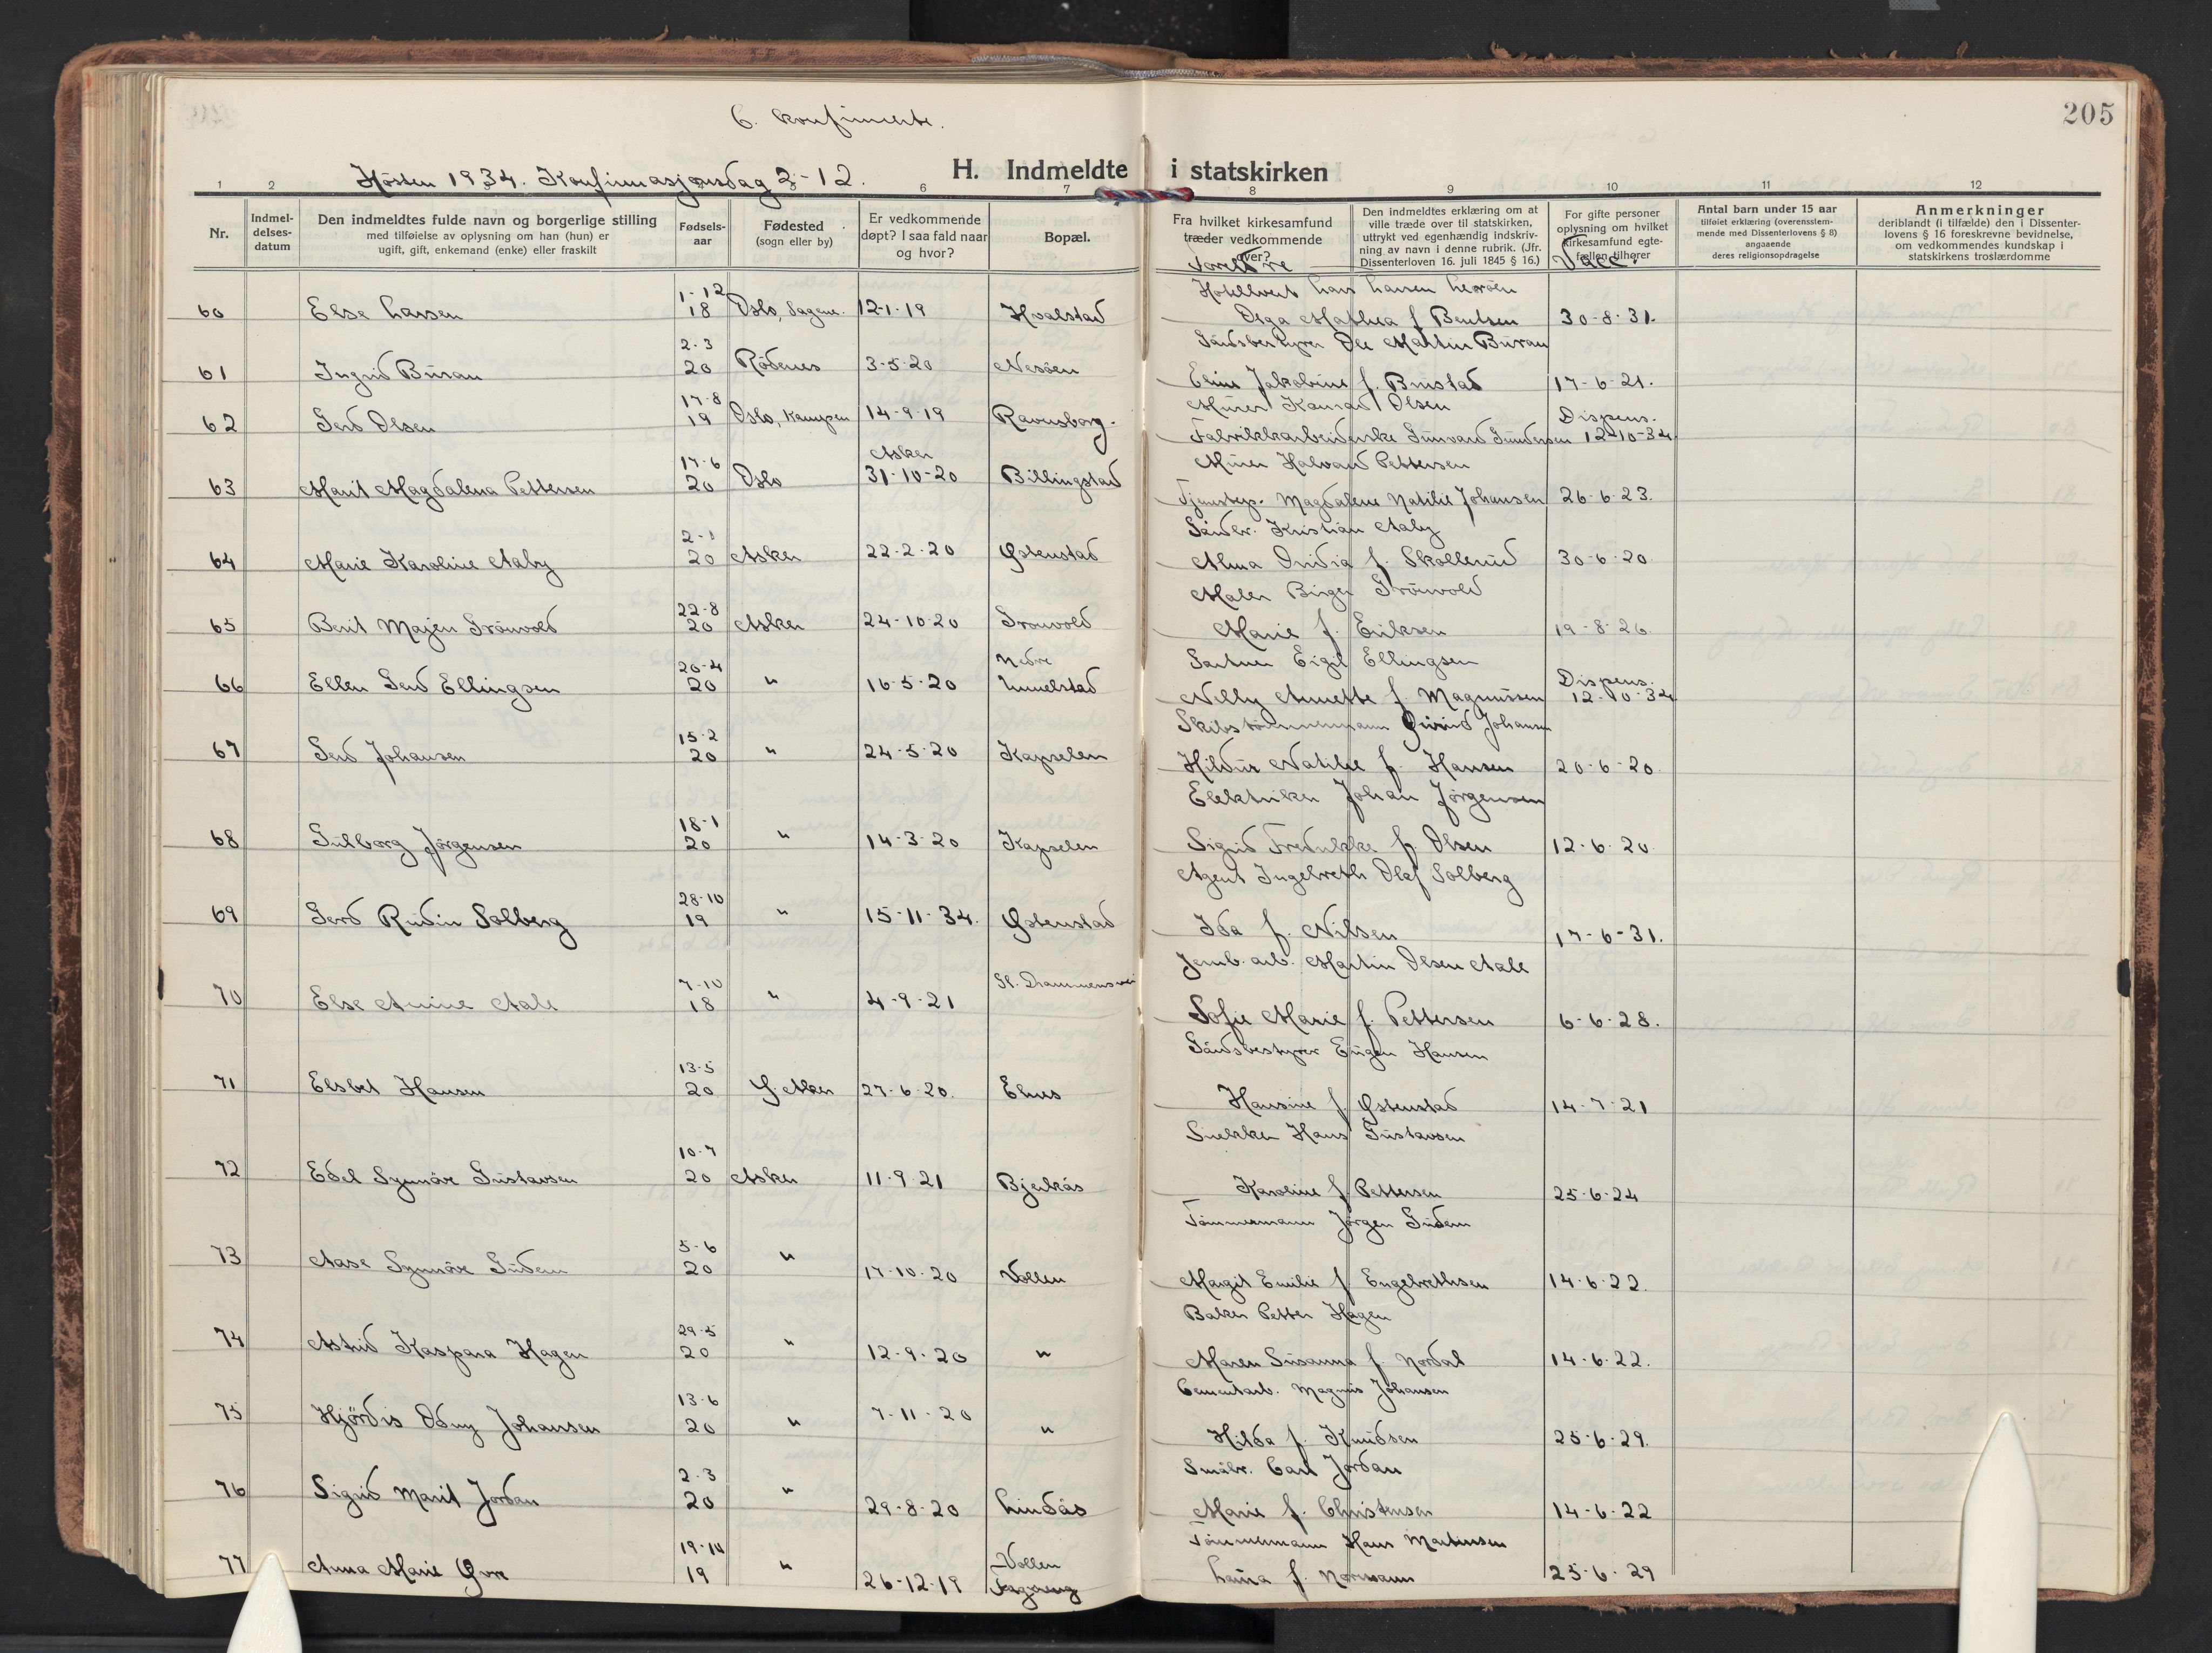 205
C. Konfirmerte.
Hösten 1934. Konfirmasjonsdag 2-12.
H. Indmeldte i statskirken
1 2 6 7 8 9 10 11 12
Nr.
Indmeldelses-datum
Den indmeldtes fulde navn og borgerlige stilling
med tilføielse av oplysning om han (hun) er
ugift, gift, enkemand (enke) eller fraskilt
Fødsels-
aar
Fødested
(sogn eller by)
Er vedkommende
døpt? I saa fald naar
og hvor?
Bopæl.
Fra hvilket kirkesamfund
træder vedkommende
over?
Foreldre
Den indmeldtes erklæring om at
ville træde over til statskirken,
uttrykt ved egenhændig indskriv-
ning av navn i denne rubrik. (Jfr.
Dissenterloven 16. juli 1845 § 16.)
For gifte personer
oplysning om hvilket
kirkesamfund egte-
fællen tilhører
Vacc.
Antal barn under 15 aar
tilføiet erklæring (overensstem-
mende med Dissenterlovens § 8)
angaaende
deres religionsopdragelse
Anmerkninger
deriblandt (i tilfælde) den i Dissenter-
lovens § 16 foreskrevne bevidnelse,
om vedkommendes kundskap i
statskirkens troslærdomme
60 Else Larsen 1-12 18 Oslo, Sagene. 12-1-19 Hvalstad Hotellvert Lars Larsen
Olga Mathea f. Bentsen 30-8-31.
61 Ingrid Buran 2-3 20 Rödenes 3-5-20 Nesöen Gårdsbestyrer Ole Martin Buran
Eline Jakobine f. Brustad 17-6-21.
62 Gerd Olsen 17-8 19 Oslo, Kampen 14-9-19 Ravnsborg. Murer Konrad Olsen
Fabrikkarbeiderske Gunvard Gundersen Dispens. 12-10-34
63 Marit Magdalena Pettersen 17-6 20 Oslo Asker 31-10-20 Billingstad Murer Halvard Pettersen
Tjenestep. Magdalene Natilie Johansen 26-6-23.
64 Marie Karoline Aaby 2-1 20 Asker 22-2-20 Østenstad Gårdbr. Kristian Aaby
Alma Ovidia f. Skollerud 30-6-20
65 Berit Majen Grönvold 22-8 20 Asker 24-10-20 Grönvold Maler Birger Grönvold
Marie f. Eriksen 19-8-26
66 Ellen Gerd Ellingsen 20-4 20 " 16-5-20 Nedre Hunelstad Gartner Eigil Ellingsen
Nelly Annette f. Magnussen Dispens. 12-10-34
67 Gerd Johansen 15-2 20 " 24-5-20 Kapselen Skibstömmermann Øivind Johansen
Hildur Natilie f. Hansen 20-6-20
68 Gulborg Jörgensen 18-1 20 " 14-3-20 Kapselen Elektriker Johan Jörgensen
Sigrid Fredrikke f. Olsen 12-6-20
69 Gerd Rudin Solberg 28-10 19 " 15-11-34. Østenstad Agent Ingelreth Olaf Solberg
Ida f. Nilsen 17-6-31.
70 Else Anine Aale 7-10 18 " 4-9-21 Gl. Drammensvei Jernb. arb. Martin Olsen Aale
Sofie Marie f. Pettersen 6-6-28.
71 Elsbet Hansen 13-5 20 Ø. Aker 27-6-20. Elnes Gårdsbestyrer Eugen Hansen
Hansine f. Østenstad 14-7-21
72 Edel Synnöve Gustavsen 10-7 20 Asker 11-9-21 Bjerkås Snekker Hans Gustavsen
Karoline f. Pettersen 25-6-24
73 Aase Synnöve Gudem 5-6 20 " 17-10-20 Vollen Tömmermann Jörgen Gudem
Margit Emilie f. Engelrethsen 14-6-22.
74 Astrid Kaspara Hagen 29-5 20 " 12-9-20 " Baker Petter Hagen
Maren Susanna f. Nordal 14-6-22.
75 Hjördis Odny Johansen 13-6 20 " 7-11-20 " Cementarb. Magnus Johansen
Hilda f. Knudsen 25-6-29.
76 Sigrid Marit Jordan 2-3 20 " 29-8-20 Lindås Småbr. Carl Jordan
Marie f. Christensen 14-6-22
77 Anna Marie Øvre 19-10 19 " 26-12-19 Vollen Tömmermann Hans Martinsen
Laura f. Normann 25-6-29